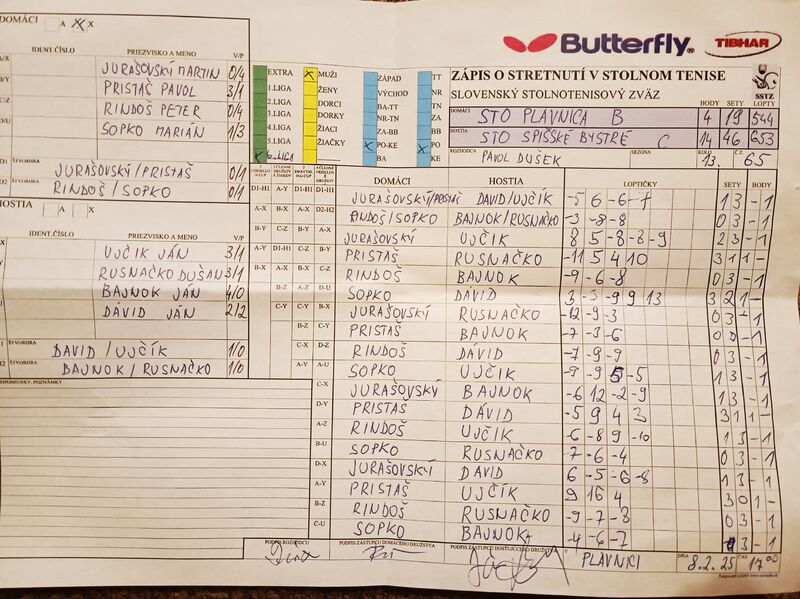 DOMÁCI A X
IDENT.ČÍSLO PRIEZVISKO A MENO V/P
JURAŠOVSKÝ MARTIN 0/4
PRISTAŠ PAVOL 3/1
RINDOŠ PETER 0/4
SOPKO MARIÁN 1/3
D1 ŠTVORHRA JURAŠOVSKÝ/PRISTAŠ 0/1
D2 RINDOŠ/SOPKO 0/1
HOSTIA A X
IDENT.ČÍSLO PRIEZVISKO A MENO V/P
UJČIK JÁN 3/1
RUSNAČKO DUŠAN 3/1
BAJNOK JÁN 4/0
DÁVID JÁN 2/2
ŠTVORHRA DAVID/UJČÍK 1/0
ŠTVORHRA BAJNOK/RUSNAČKO 1/0
PRIPOMIENKY, POZNÁMKY
EXTRA MUŽI ZÁPAD TT
1.LIGA ŽENY VÝCHOD NR
2.LIGA DORCI BA-TT TN
3.LIGA DORKY NR-TN ZA
4.LIGA ŽIACI ZA-BB BB
5.LIGA ŽIAČKY PO-KE PO
6.LIGA BA KE
Butterfly TIBHAR
ZÁPIS O STRETNUTÍ V STOLNOM TENISE
SLOVENSKÝ STOLNOTENISOVÝ ZVÄZ
SSTZ
BODY SETY LOPTY
DOMÁCI STO PLAVNICA B 4 19 544
HOSTIA STO SPIŠSKÉ BYSTRÉ C 14 46 653
ROZHODCA PAVOL DUŠEK SEZÓNA KOLO 13. Č.Z. 65
DOMÁCI HOSTIA LOPTIČKY SETY BODY
D1-H1 A-Y D1-H1 D1-H1 JURAŠOVSKÝ/PRISTAŠ DAVID/UJČÍK -5 6 -6 -7 1 3 - 1
A-X B-X A-X D2-H2 RINDOŠ/SOPKO BAJNOK/RUSNAČKO -3 -8 -8 0 3 - 1
B-Y C-Z B-Y A-X JURAŠOVSKÝ UJČÍK 8 5 -8 -8 -9 2 3 - 1
A-Y D1-H1 C-Z B-Y PRISTAŠ RUSNAČKO -11 5 4 10 3 1 1 -
B-X A-X B-X C-Z RINDOŠ BAJNOK -9 -6 -8 0 3 - 1
D-U SOPKO DÁVID 3 -3 -9 9 13 3 2 1 -
JURAŠOVSKÝ RUSNAČKO -12 -9 -3 0 3 - 1
B-Z C-Y PRISTAŠ BAJNOK -7 -3 -6 0 3 - 1
C-X D-Z RINDOŠ DAVID -7 -9 -9 0 3 - 1
A-Y A-U SOPKO UJČIK -9 -9 5 -5 1 3 - 1
C-X JURAŠOVSKÝ BAJNOK -6 12 -2 -9 1 3 - 1
D-Y PRISTAŠ DÁVID -5 9 4 3 3 1 1 -
A-Z RINDOŠ UJČÍK -6 -8 9 -10 1 3 - 1
B-U SOPKO RUSNAČKO -7 -6 -4 0 3 - 1
D-X JURAŠOVSKÝ DAVID 6 -5 -6 -8 1 3 - 1
A-Y PRISTAŠ UJČÍK 9 16 4 3 0 1 -
RINDOŠ RUSNAČKO -9 -7 -8 0 3 - 1
C-U SOPKO BAJNOK -4 -6 -2 0 3 - 1
PODPIS ROZHODCU PODPIS ZÁSTUPCU DOMÁCEHO DRUŽSTVA PODPIS ZÁSTUPCU HOSŤUJÚCEHO DRUŽSTVA V PLAVNICI DŇA 8.2.25 ČAS 17 00